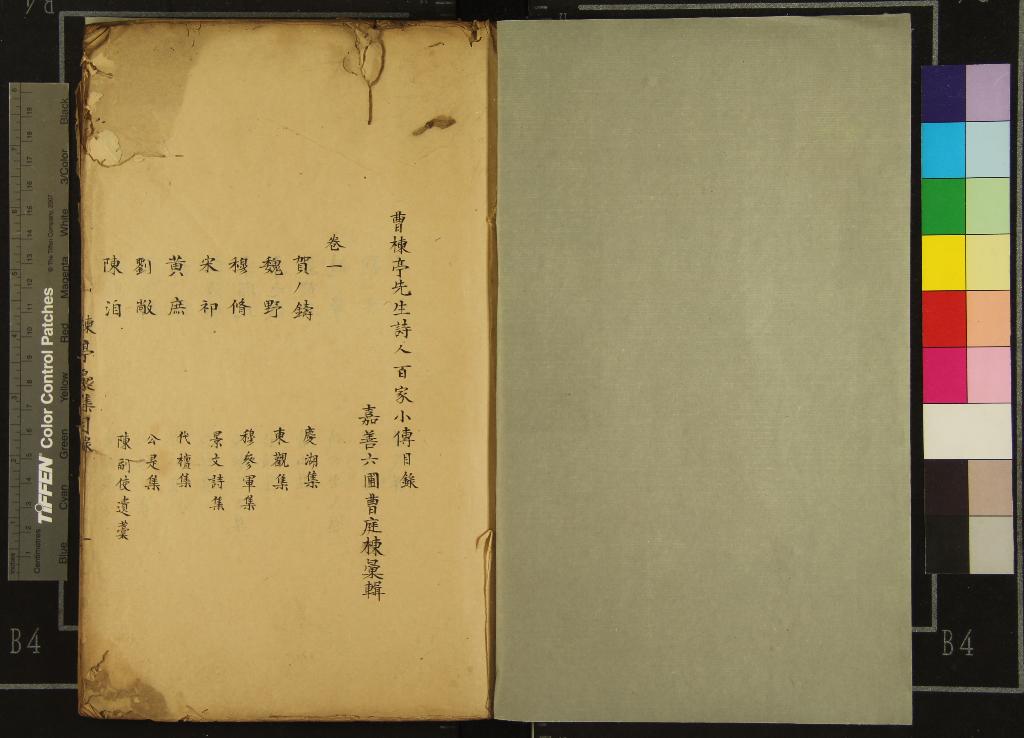 曹棟亭先生詩人百家小傳目錄
嘉善六圃曹庭棟彙輯
卷一
賀鑄 慶湖集
魏野 東觀集
穆脩 穆參軍集
宋祁 景文詩集
黃庶 代檀集
劉敞 公是集
陳洎 陳副使遺藁
TIFFEN Color Control Patches
© The Tiffen Company, 2007
Blue Cyan Green Yellow Red Magenta White 3/Color Black
Inches
Centimetres
B4
B4